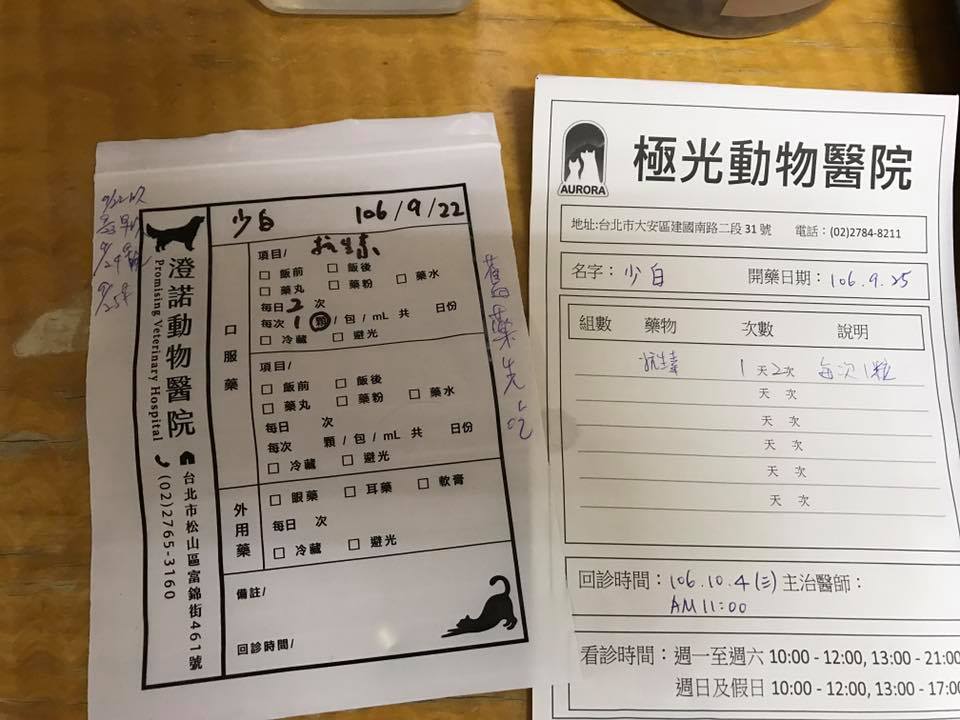 少白 106/9/22
澄諾動物醫院
Promising Veterinary Hospital
台北市松山區富錦街461號
(02)2765-3160
口服藥
項目/ 抗生素
□ 飯前 □ 飯後
□ 藥丸 □ 藥粉 □ 藥水
每日 2 次
每次 1 顆 / 包 / mL 共 日份
□ 冷藏 □ 避光
項目/
□ 飯前 □ 飯後
□ 藥丸 □ 藥粉 □ 藥水
每日 次
每次 顆 / 包 / mL 共 日份
□ 冷藏 □ 避光
外用藥
□ 眼藥 □ 耳藥 □ 軟膏
每日 次
□ 冷藏 □ 避光
備註/
回診時間/
舊藥先吃
AURORA
極光動物醫院
地址:台北市大安區建國南路二段 31 號 電話：(02)2784-8211
名字：少白 開藥日期：106.9.25
組數 藥物 次數 說明
抗生素 1 天 2 次 每次1粒
天 次
天 次
天 次
天 次
天 次
回診時間：106.10.4 (三) 主治醫師：
AM 11:00
看診時間：週一至週六 10:00 - 12:00, 13:00 - 21:00
週日及假日 10:00 - 12:00, 13:00 - 17:00